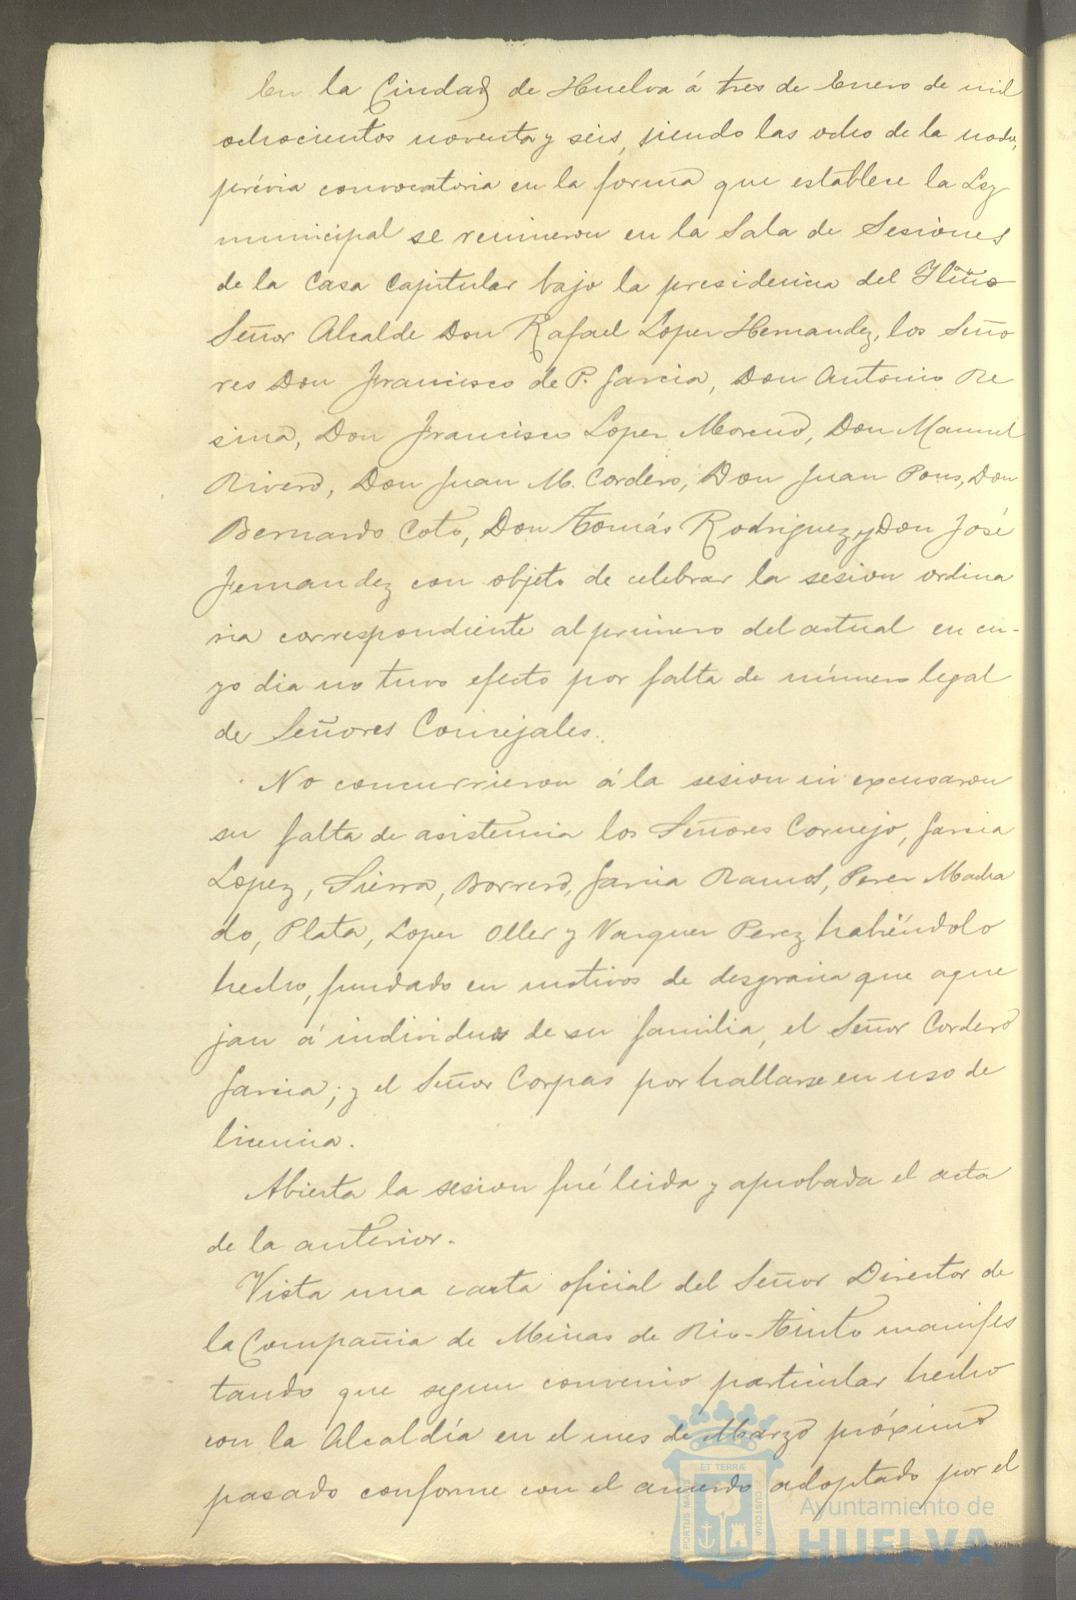 En la Ciudad de Huelva á tres de Enero de mil
ochocientos noventa y seis, siendo las ocho de la noche,
prévia convocatoria en la forma que establece la Ley
municipal se reunieron en la Sala de Sesiones
de la Casa Capitular bajo la presidencia del Iltmo
Señor Alcalde Don Rafael Lopez Hernandez, los Seño
res Don Francisco de P. Garcia, Don Antonio Re
sina, Don Francisco Lopez Moreno, Don Manuel
Rivero, Don Juan M. Cordero, Don Juan Pons, Don
Bernardo Coto, Don Tomás Rodriguez y Don José
Fernandez con objeto de celebrar la sesion ordina
ria correspondiente al primero del actual en cu-
yo dia no tuvo efecto por falta de número legal
de Señores Concejales.
No concurrieron á la sesion ni excusaron
su falta de asistencia los Señores Cornejo, Garcia
Lopez, Sierra, Borrero, Garcia Ramos, Perez Macha
do, Plata, Lopez Oller y Vazquez Perez habiéndolo
hecho, fundado en motivos de desgracia que aque
jan á individuos de su familia, el Señor Cordero
Garcia; y el Señor Corpas por hallarse en uso de
licencia.
Abierta la sesion fué leida y aprobada el acta
de la anterior.
Vista una carta oficial del Señor Director de
la Compañia de Minas de Rio-Tinto manifes
tando que segun convenio particular hecho
con la Alcaldía en el mes de Marzo próximo
pasado conforme con el acuerdo adoptado por el
ET TERRÆ
PORTUS MARIS
CUSTODIA
Ayuntamiento de
HUELVA